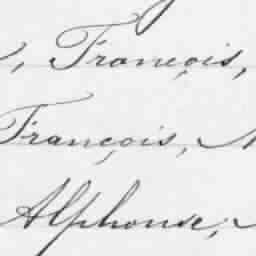 , François,
François,
Alphonse,